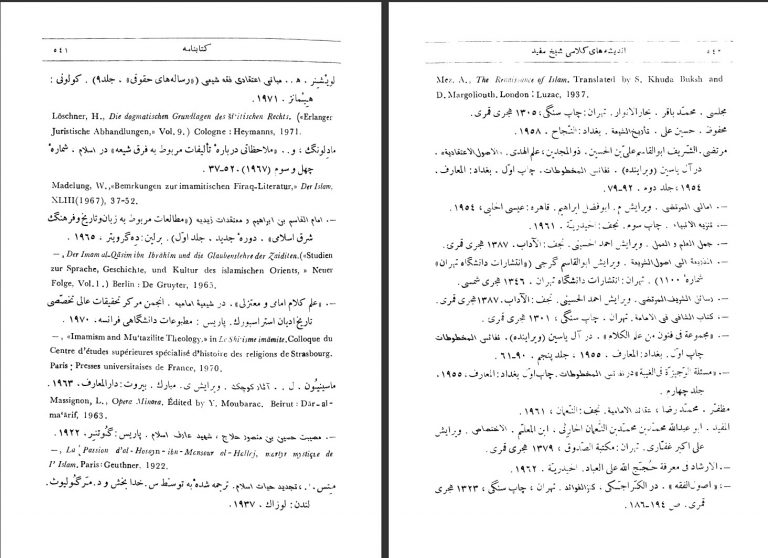 کتابنامه ۵۴۱
لوشنر . ه. . مبانی اعتقادی فقه شیعی («رساله‌های حقوقی» . جلد۹) . کولونی :
هیمانز . ۱۹۷۱ .
Löschner, H., Die dogmatischen Grundlagen des ši'itischen Rechts, («Erlanger
Juristische Abhandlungen,» Vol. 9.) Cologne : Heymanns, 1971.
مادلونگ ، و. . «ملاحظاتی دربارهٔ تألیفات مربوط به فرق شیعه» در اسلام . شمارهٔ
چهل و سوم (۱۹۶۷) . ۵۲-۳۷ .
Madelung, W.,«Bemrkungen zur imamitischen Firaq-Literatur,» Der Islam,
XLIII(1967), 37-52.
—. امام القاسم بن ابراهیم و معتقدات زیدیه («مطالعات مربوط به زبان‌وتاریخ‌وفرهنگ
شرق اسلامی» . دورهٔ جدید . جلد اول) . برلین: ده‌گرویتر ، ۱۹۶۵ .
—, Der Imam al-Qāsim ibn Ibrāhīm und die Glaubenslehre der Zaiditen,(«Studien
zur Sprache, Geschichte, und Kultur des islamischen Orients, » Neuer
Folge, Vol. 1,) Berlin : De Gruyter, 1965.
—. «علم کلام امامی و معتزلی» . در شیعیهٔ امامیه . انجمن مرکز تحقیقات عالی تخصّصی
تاریخ ادیان استراسبورک . پاریس : مطبوعات دانشگاهی فرانسه . ۱۹۷۰ .
—, «Imamism and Mu'tazilite Theology,» in Le Shi'isme imāmite,Colloque du
Centre d'études supérieures spécialisé d'histoire des religions de Strasbourg.
Paris : Presses universitaires de France, 1970.
ماسینیون . ل. . آثار کوچک . ویرایش ی. مبارک . بیروت : دارالمعارف . ۱۹۶۳ .
Massignon, L., Opera Minora, Édited by Y. Moubarac. Beirut : Dār-al-
ma'ārif, 1963.
—. مصیبت حسین بن منصور حلاج ، شهید عارف اسلام . پاریس: گوتنیر . ۱۹۲۲ .
—, La Passion d'al-Hosayn-ibn-Mansour al-Hallaj, martyr mystique de
l' Islam, Paris: Geuthner, 1922.
متس. ا. ، تجدید حیات اسلام . ترجمه شده به توسط س. خدا بخش و د. مرگولیوث .
لندن : لوزاک . ۱۹۳۷ .
اندیشه‌های کلامی شیخ مفید ۵۴۲
Mez, A., The Renaissance of Islam, Translated by S. Khuda Buksh and
D. Margoliouth. London : Luzac, 1937.
مجلسی . محمّد باقر . بحارالانوار . تهران : چاپ سنگی، ۱۳۰۵ هجری قمری .
محفوظ . حسین علی . تأریخ الشیعة . بغداد : النّجاح . ۱۹۵۸ .
مرتضی. الشّریف ابوالقاسم علیّ بن الحسین . ذوالمجدین، علم الهدی . «الاصول الاعتقادیة» .
در آل یاسین (ویراینده) . نفائس المخطوطات . چاپ اول . بغداد : المعارف .
۱۹۵۴ ، جلد دوم . ۹۲-۷۹ .
—. امالی المرتضی . ویرایش م . ابوفضل ابراهیم . قاهره : عیسی الحلبی . ۱۹۵۴ .
—. تنزیه الانبیاء . چاپ سوم . نجف : الحیدریّة . ۱۹۶۱ .
—. جمل العلم و العمل . ویرایش احمد الحسینی . نجف : الآداب . ۱۳۸۷ هجری قمری .
—. الذریعة الی اصول الشریعة . ویرایش ابوالقاسم گرجی («انتشارات دانشگاه تهران»
شمارهٔ ۱۱۰۰) . تهران : انتشارات دانشگاه تهران . ۱۳۴۶ هجری شمسی .
—. رسائل الشریف المرتضی . ویرایش احمد الحسینی . نجف : الآداب . ۱۳۸۷ هجری قمری .
—. کتاب الشافی فی الامامة . تهران : چاپ سنگی ، ۱۳۰۱ هجری قمری .
—. «مجموعة فی فنون من علم الکلام» . در آل یاسین (ویراینده) . نفائس المخطوطات
چاپ اول . بغداد : المعارف . ۱۹۵۵ ، جلد پنجم . ۹۰-۶۱ .
—. «مسئلة الوجیزة فی الغیبة» در نفائس المخطوطات . چاپ اول بغداد : المعارف، ۱۹۵۵ .
جلد چهارم .
مظفّر . محمّد رضا ، عقائد الامامیة . نجف : النّعمان ، ۱۹۶۱ .
المفید . ابو عبدالله محمّد بن محمّد بن النّعمان الحارثی . ابن المعلّم . الاختصاص . ویرایش
علی اکبر غفّاری . تهران : مکتبة الصّدوق ، ۱۳۷۹ هجری قمری .
—. الارشاد فی معرفة حُجَج الله علی العباد . الحیدریّة . ۱۹۶۲ .
—. «اصول الفقه» . در الکراجکی ، کنز الفوائد . تهران ، چاپ سنگی ، ۱۳۲۳ هجری
قمری . ص ۱۹۴-۱۸۶ .